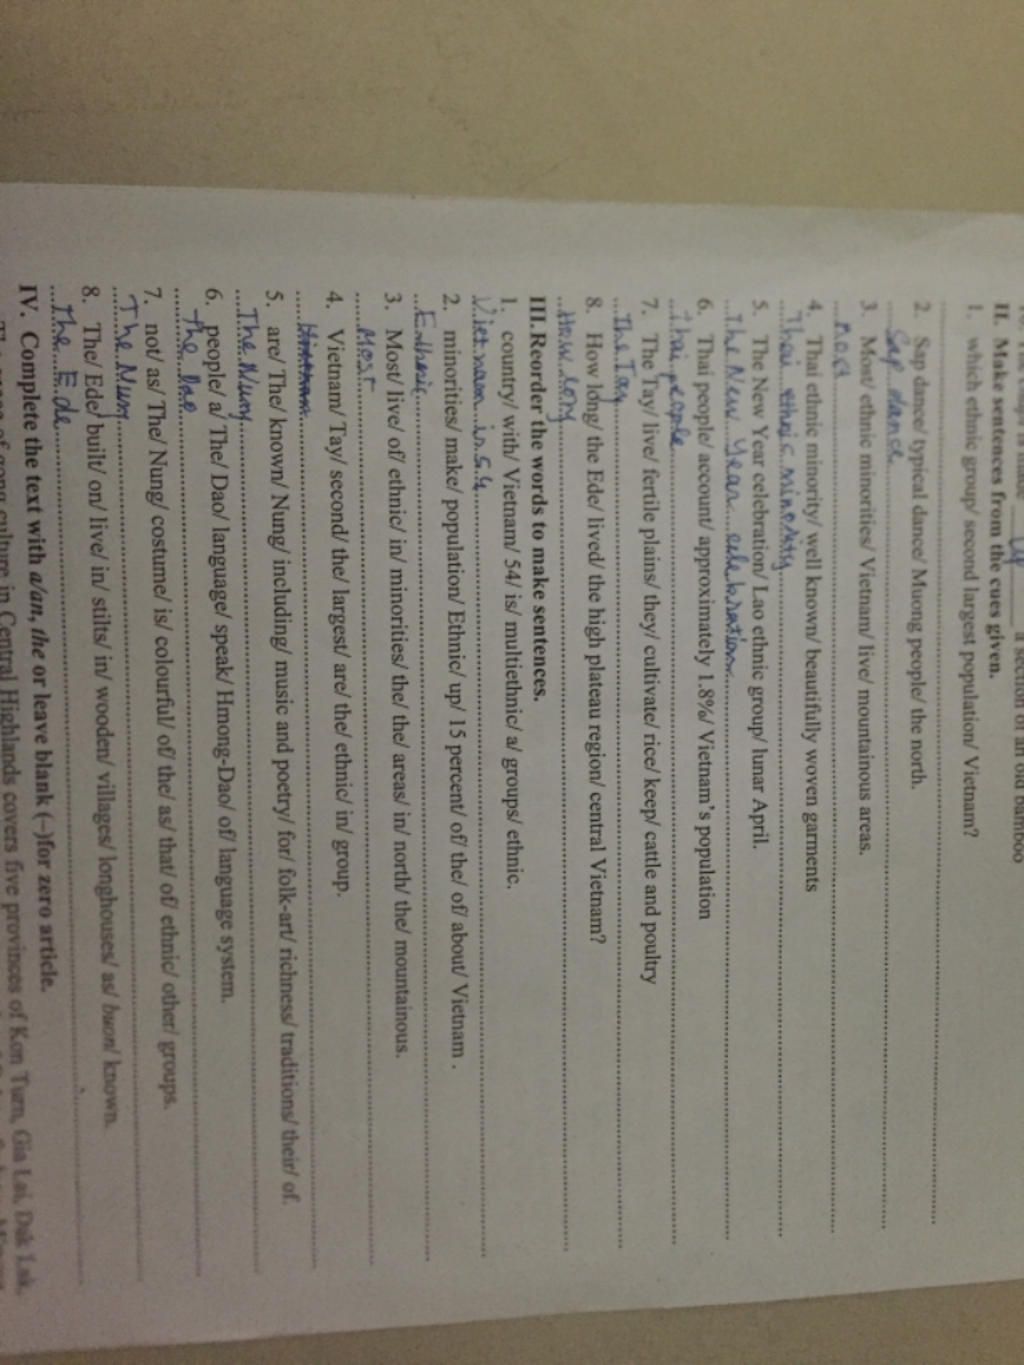 by a section of an old bamboo
II. Make sentences from the cues given.
1. which ethnic group/ second largest population/ Vietnam?
2. Sap dance/ typical dance/ Muong people/ the north.
Sap dance
3. Most/ ethnic minorities/ Vietnam/ live/ mountainous areas.
4. Thai ethnic minority/ well known/ beautifully woven garments
Thai ethnic minority
5. The New Year celebration/ Lao ethnic group/ lunar April.
The New Year celebration
6. Thai people/ account/ approximately 1.8%/ Vietnam's population
thai people
7. The Tay/ live/ fertile plains/ they/ cultivate/ rice/ keep/ cattle and poultry
The Tay
8. How long/ the Ede/ lived/ the high plateau region/ central Vietnam?
How long
III.Reorder the words to make sentences.
1. country/ with/ Vietnam/ 54/ is/ multiethnic/ a/ groups/ ethnic.
Viet nam is 54
2. minorities/ make/ population/ Ethnic/ up/ 15 percent/ of/ the/ of/ about/ Vietnam .
3. Most/ live/ of/ ethnic/ in/ minorities/ the/ the/ areas/ in/ north/ the/ mountainous.
Most
4. Vietnam/ Tay/ second/ the/ largest/ are/ the/ ethnic/ in/ group.
5. are/ The/ known/ Nung/ including/ music and poetry/ for/ folk-art/ richness/ traditions/ their/ of.
The Nung
6. people/ a/ The/ Dao/ language/ speak/ Hmong-Dao/ of/ language system.
the
7. not/ as/ The/ Nung/ costume/ is/ colourful/ of/ the/ as/ that/ of/ ethnic/ other/ groups.
The Nung
8. The/ Ede/ built/ on/ live/ in/ stilts/ in/ wooden/ villages/ longhouses/ as/ buon/ known.
The Ede
IV. Complete the text with a/an, the or leave blank (–)for zero article.
of gong culture in Central Highlands covers five provinces of Kon Tum, Gia Lai, Dak Lak,